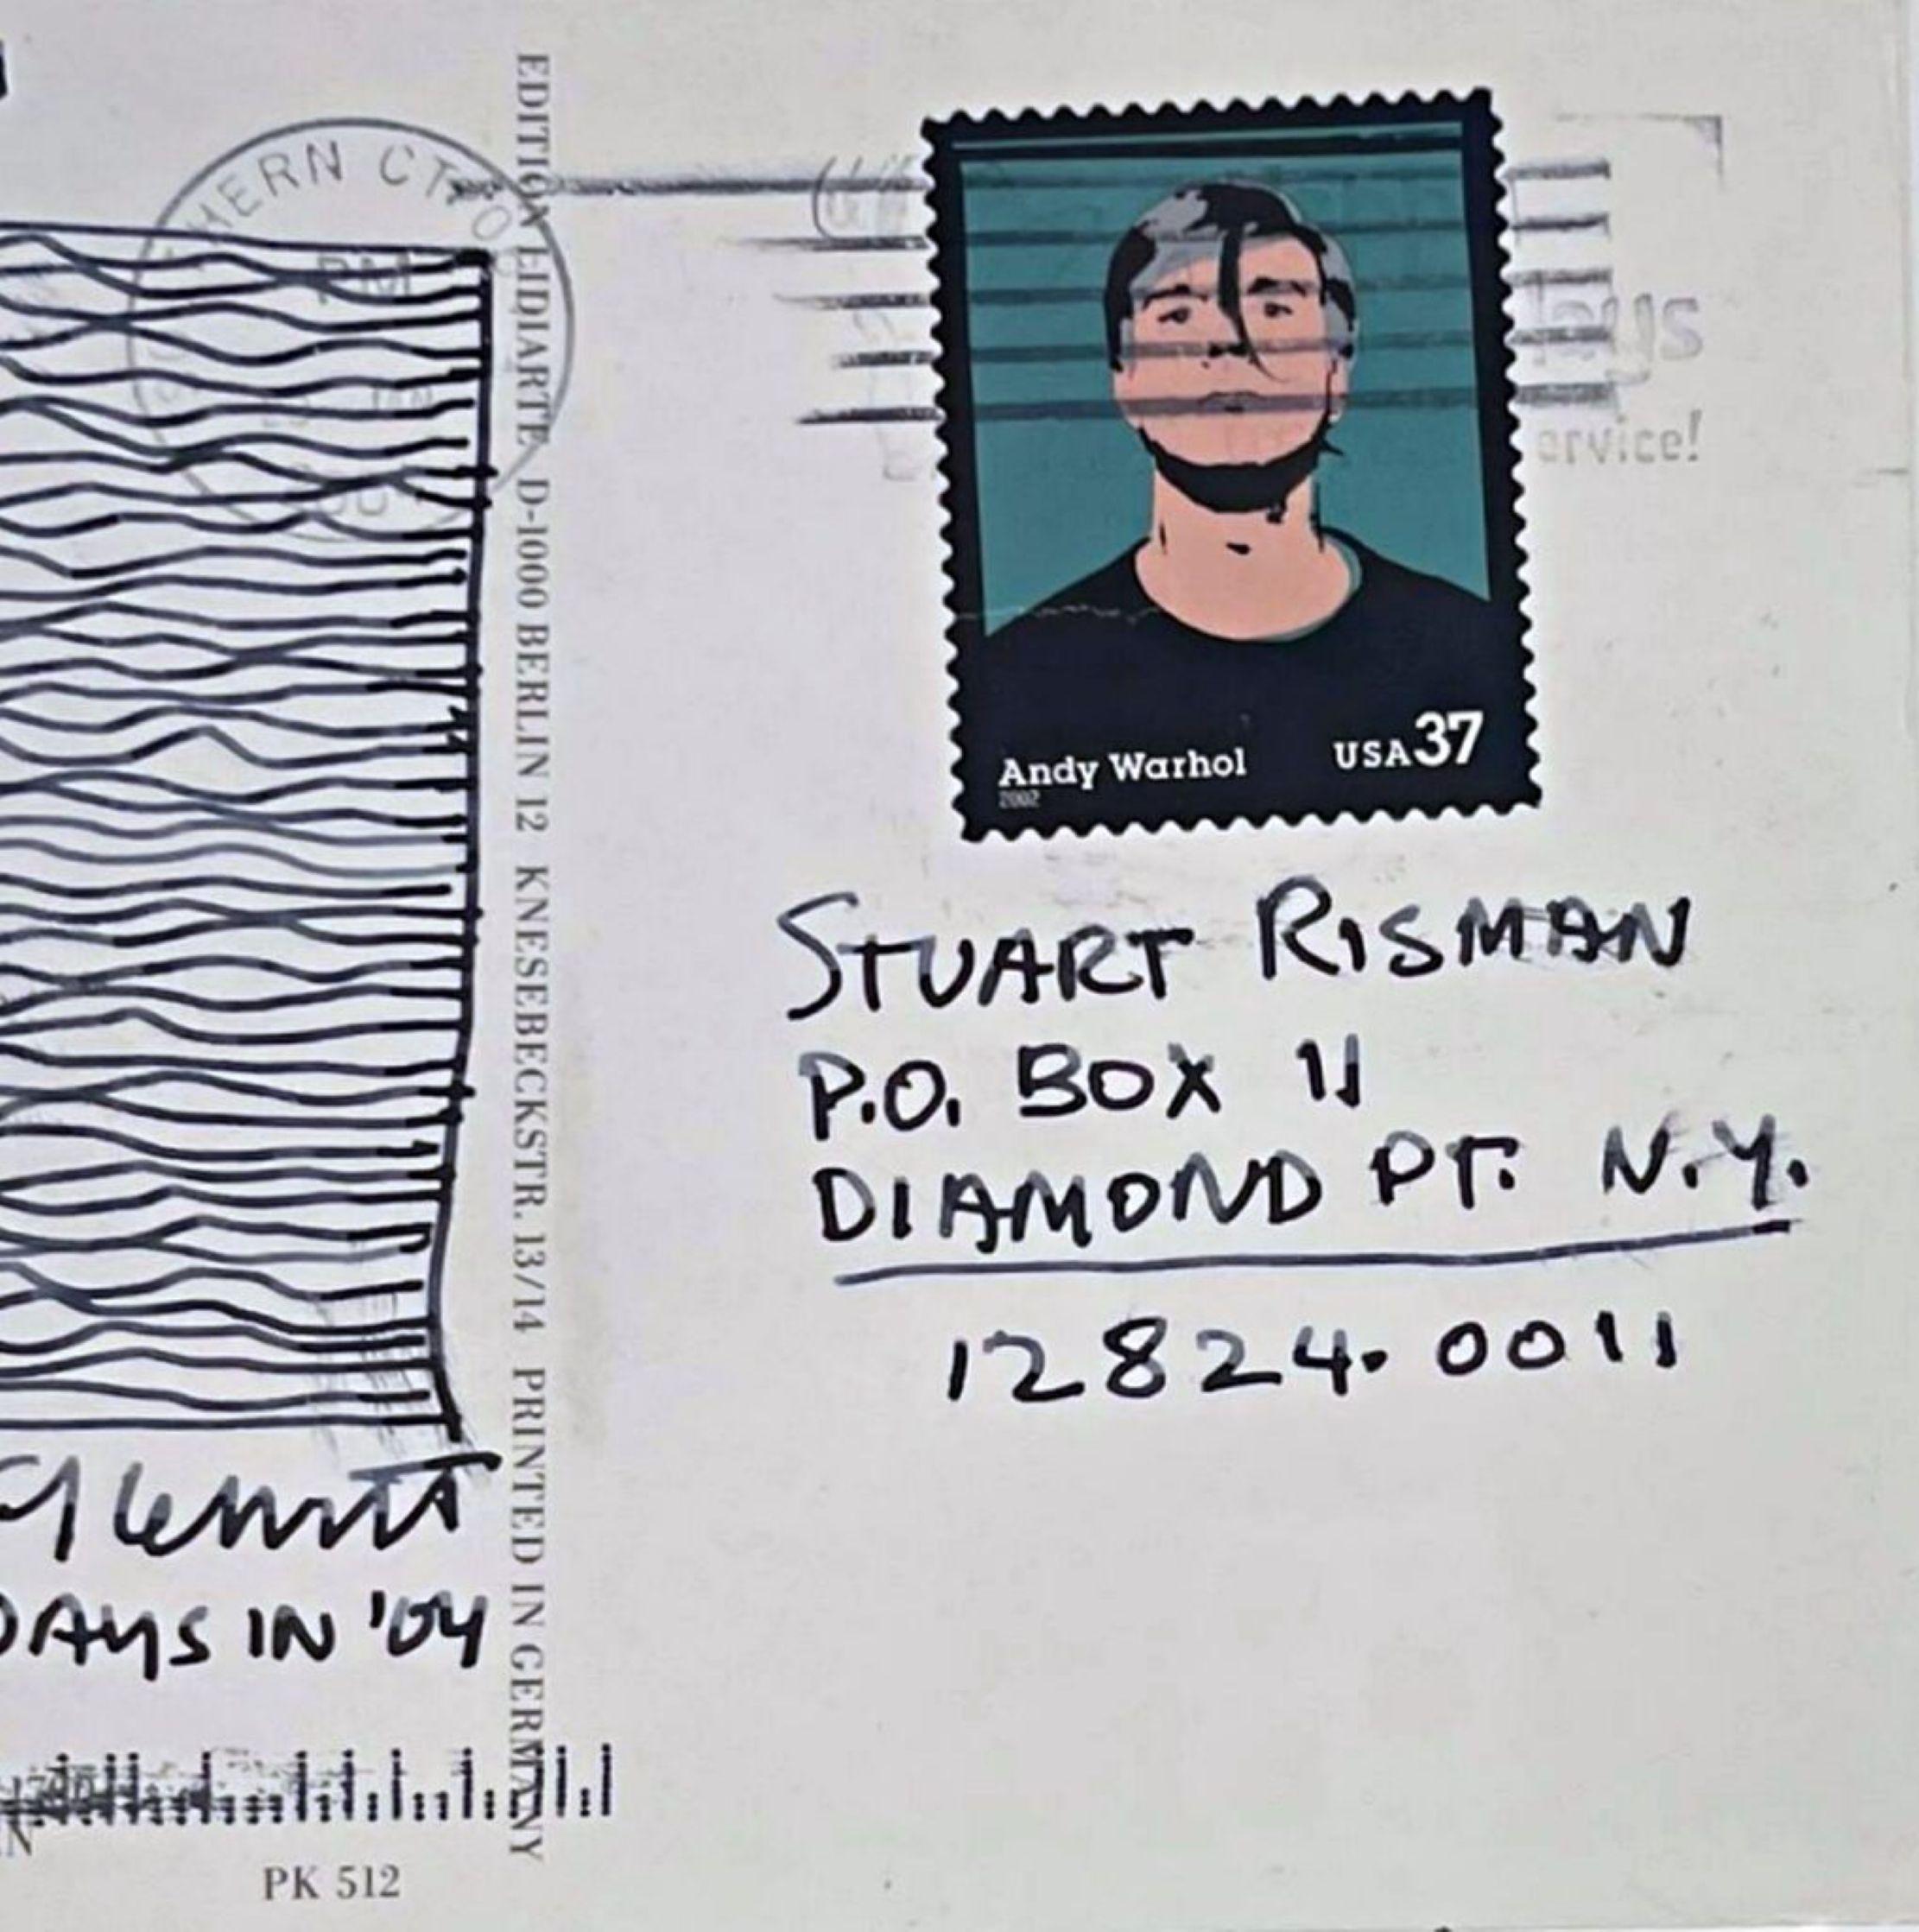 HERN CT
PM
EDITION EIDIARTE D-1000 BERLIN 12 KNESEBECKSTR. 13/14 PRINTED IN GERMANY
Andy Warhol
2002
USA 37
ervice!
STUART RISMAN
P.O. BOX 11
DIAMOND PT. N.Y.
12824.0011
DAYS IN '04
PK 512